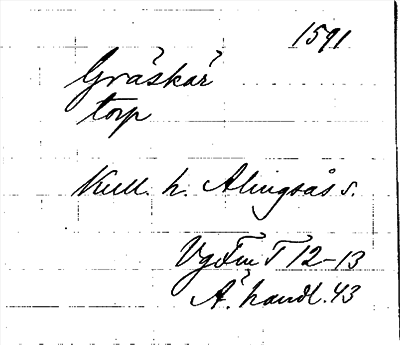 1591
Gräskär
torp
Kull. h. Alingsås s.
VgFmT I 2-13
Ä. handl. 43